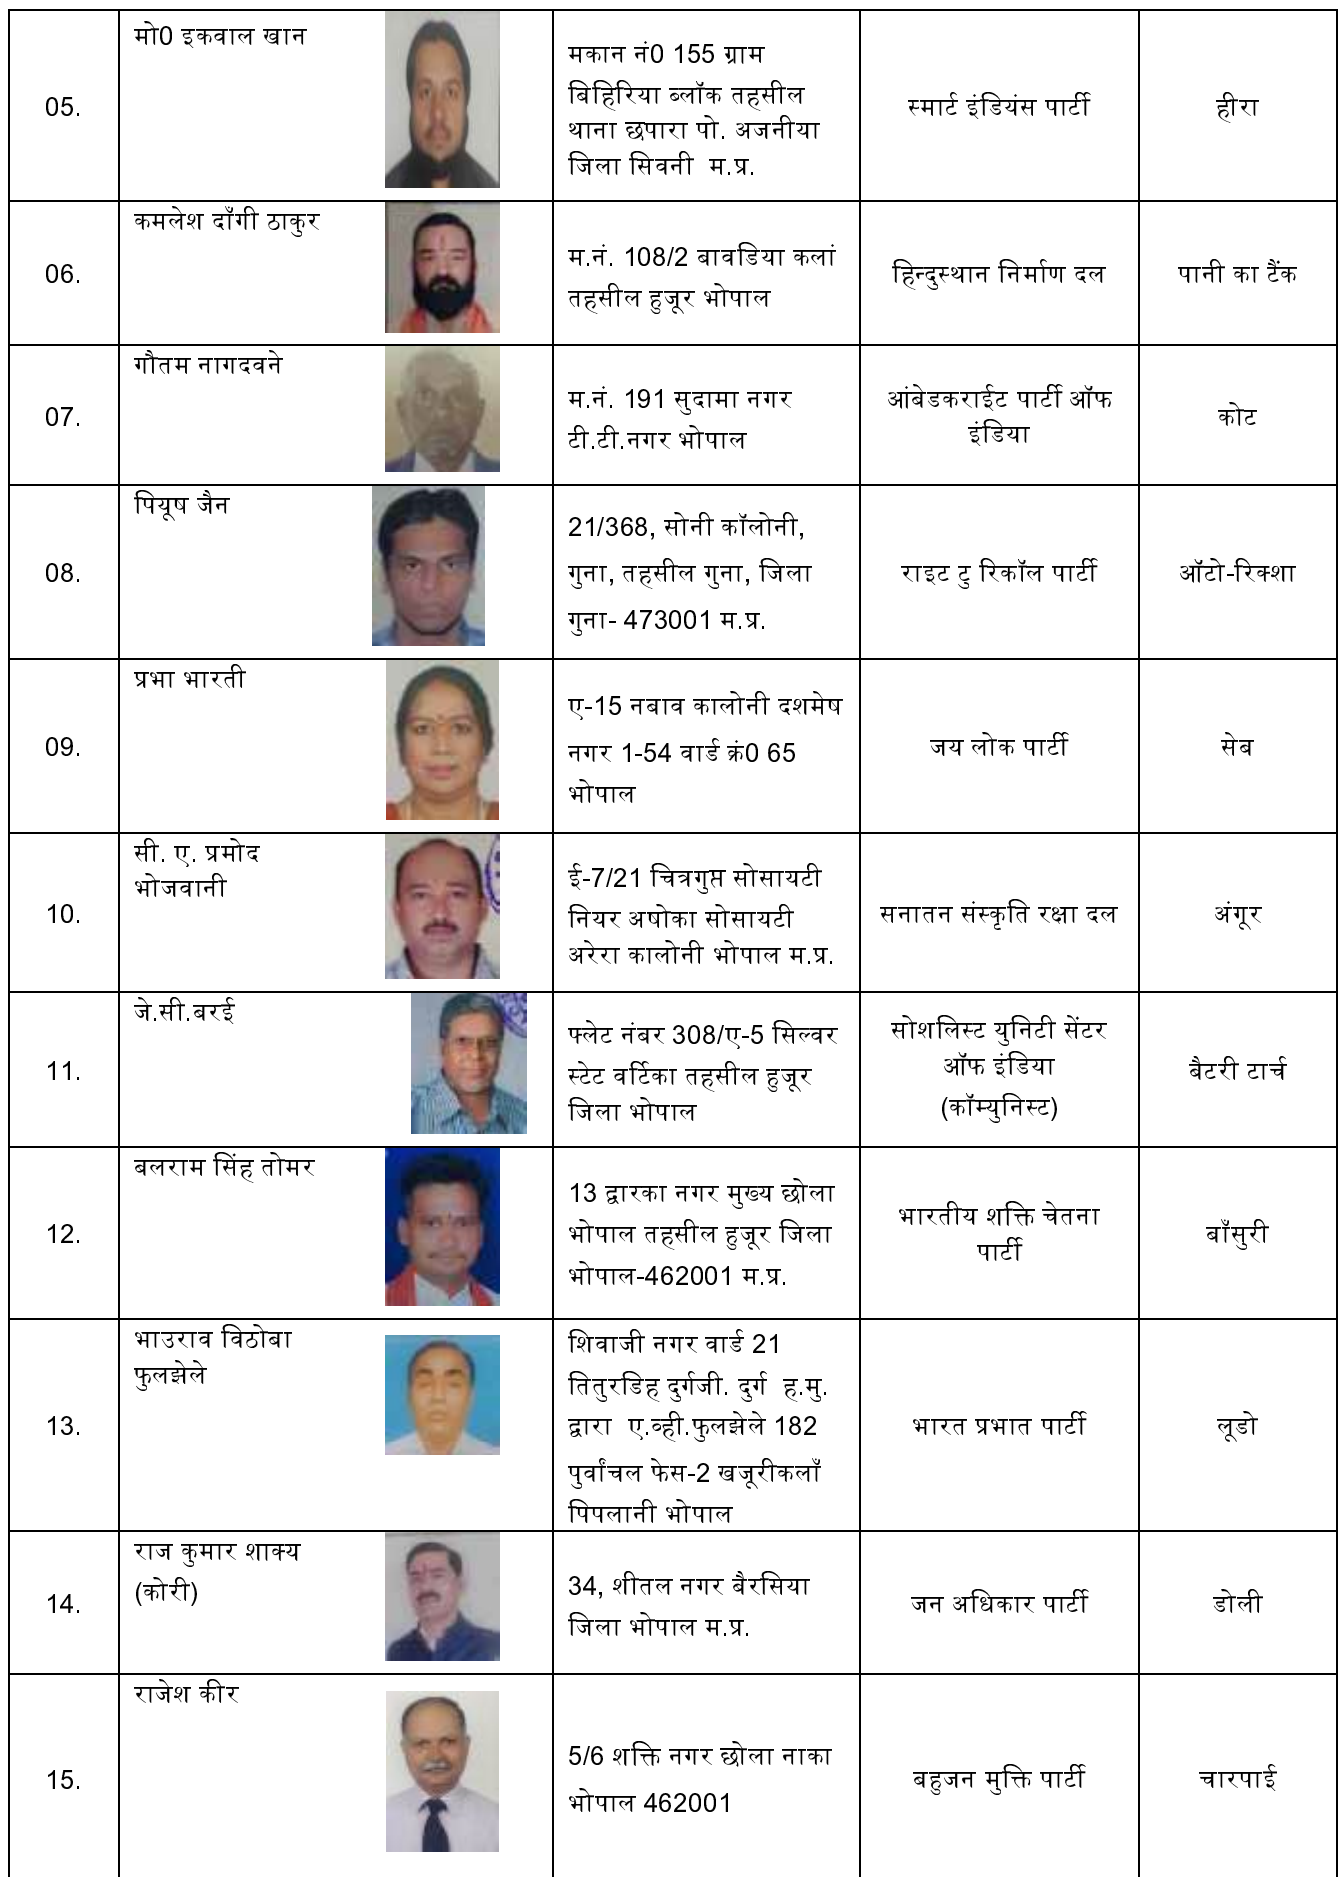 05.
मो0 इकवाल खान
मकान नं0 155 ग्राम
बिहिरिया ब्लॉक तहसील
थाना छपारा पो. अजनीया
जिला सिवनी म.प्र.
स्मार्ट इंडियंस पार्टी
हीरा
06.
कमलेश दाँगी ठाकुर
म.नं. 108/2 बावडिया कलां
तहसील हुजूर भोपाल
हिन्दुस्थान निर्माण दल
पानी का टैंक
07.
गौतम नागदवने
म.नं. 191 सुदामा नगर
टी.टी.नगर भोपाल
आंबेडकराईट पार्टी ऑफ
इंडिया
कोट
08.
पियूष जैन
21/368, सोनी कॉलोनी,
गुना, तहसील गुना, जिला
गुना- 473001 म.प्र.
राइट टु रिकॉल पार्टी
ऑटो-रिक्शा
09.
प्रभा भारती
ए-15 नबाव कालोनी दशमेष
नगर 1-54 वार्ड क्रं0 65
भोपाल
जय लोक पार्टी
सेब
10.
सी. ए. प्रमोद
भोजवानी
ई-7/21 चित्रगुप्त सोसायटी
नियर अषोका सोसायटी
अरेरा कालोनी भोपाल म.प्र.
सनातन संस्कृति रक्षा दल
अंगूर
11.
जे.सी.बरई
फ्लेट नंबर 308/ए-5 सिल्वर
स्टेट वर्टिका तहसील हुजूर
जिला भोपाल
सोशलिस्ट युनिटी सेंटर
ऑफ इंडिया
(कॉम्युनिस्ट)
बैटरी टार्च
12.
बलराम सिंह तोमर
13 द्वारका नगर मुख्य छोला
भोपाल तहसील हुजूर जिला
भोपाल-462001 म.प्र.
भारतीय शक्ति चेतना
पार्टी
बाँसुरी
13.
भाउराव विठोबा
फुलझेले
शिवाजी नगर वार्ड 21
तितुरडिह दुर्गजी. दुर्ग ह.मु.
द्वारा ए.व्ही.फुलझेले 182
पुर्वांचल फेस-2 खजूरीकलाँ
पिपलानी भोपाल
भारत प्रभात पार्टी
लूडो
14.
राज कुमार शाक्य
(कोरी)
34, शीतल नगर बैरसिया
जिला भोपाल म.प्र.
जन अधिकार पार्टी
डोली
15.
राजेश कीर
5/6 शक्ति नगर छोला नाका
भोपाल 462001
बहुजन मुक्ति पार्टी
चारपाई